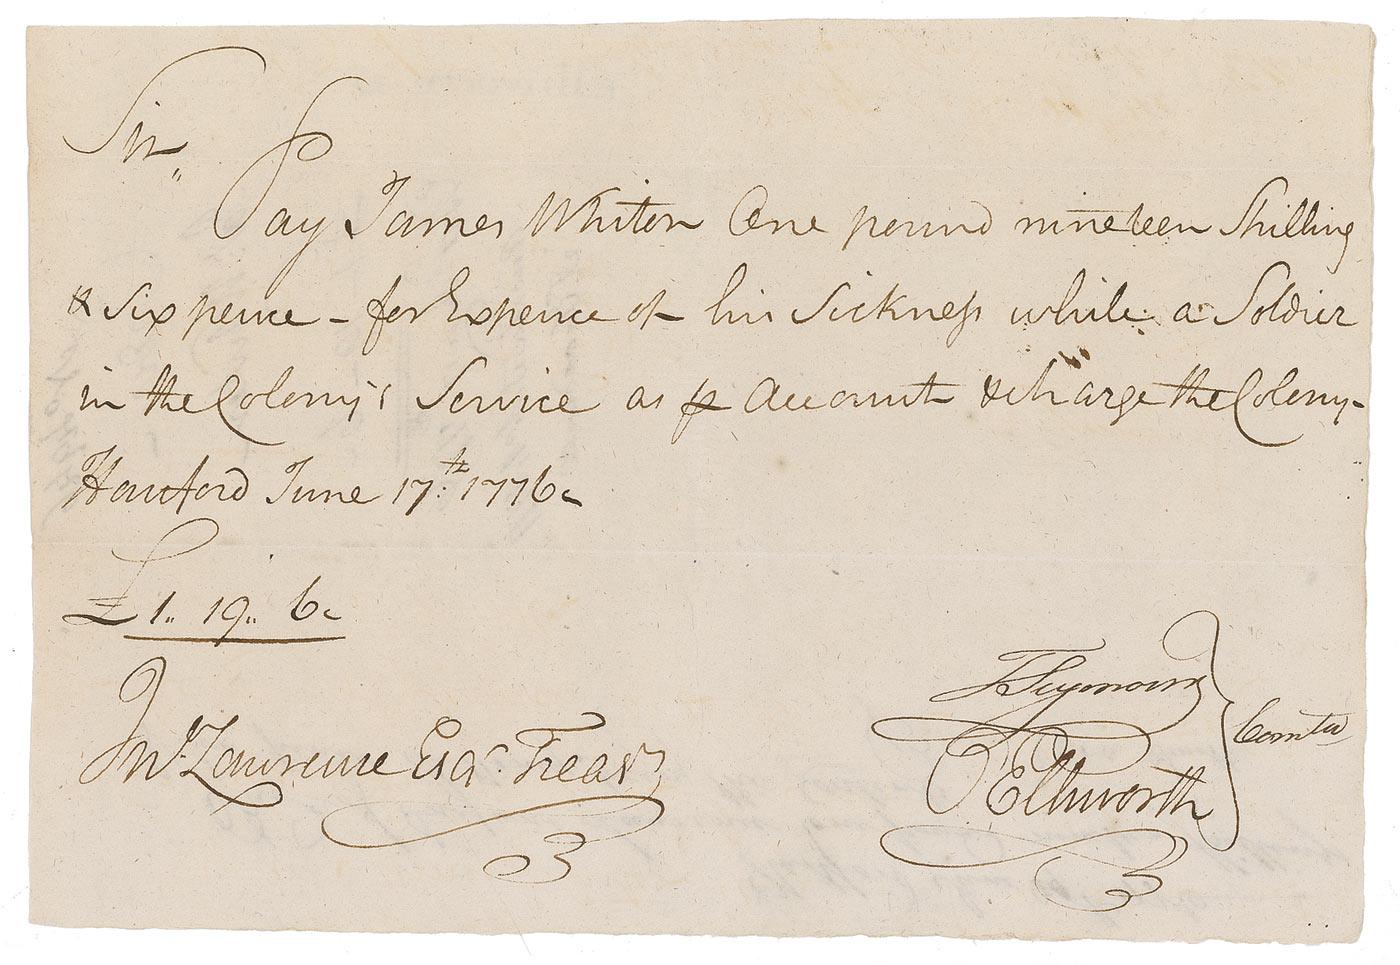 Sir,,
Pay James Whiton One pound nineteen Shilling
& Six pence - for Expence of his Sickness while a Soldier
in the Colony's Service as pr Account & charge the Colony -
Hartford June 17th. 1776.
£1,, 19,, 6.
Jno. Lawrence Esqr. Treasr
T Seymour
O Ellsworth
Comtee